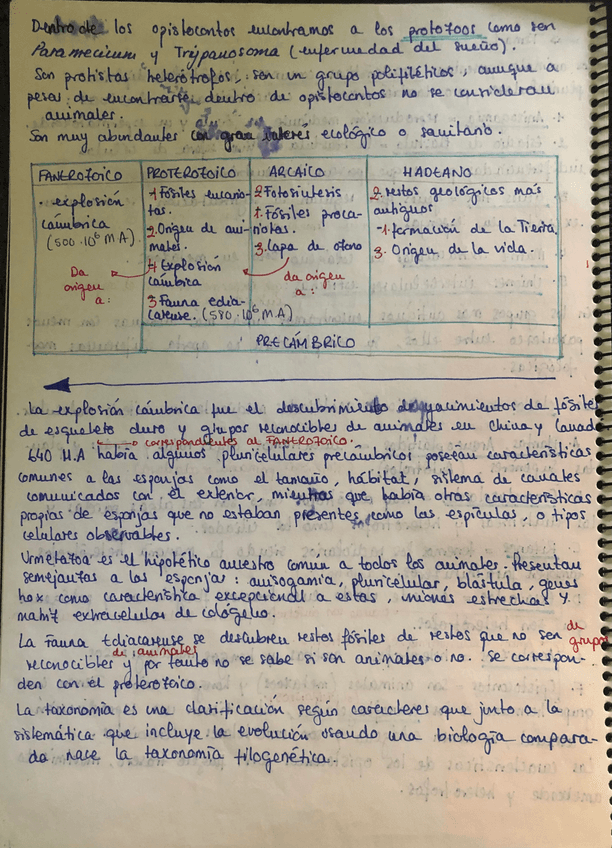 Dentro de los opistocontos encontramos a los protozoos como son
Paramecium y Trypanosoma (enfermedad del sueño).
Son protistas heterótrofos, son un grupo polifiléticos, aunque a
pesar de encontrarse dentro de opistocontos no se consideran
animales.
Son muy abundantes con gran interés ecológico o sanitario.
FANEROZOICO PROTEROZOICO ARCAICO HADEANO
· explosión
cámbrica
(500·10⁶ M.A)
Da
origen
a:
1 Fósiles eucario-
tas.
2. Origen de ani-
males.
4. Explosión
cámbica
3 Fauna edia-
carense. (580·10⁶ M.A)
2. Fotosíntesis
1. Fósiles proca-
riotas.
3. Capa de ozono
da origen
a:
2. restos geológicos más
antiguos
1. formación de la Tierra
3. Origen de la vida.
PRECÁMBRICO
. La explosión cámbrica fue el descubrimiento de yacimientos de fósiles
de esqueleto duro y grupos reconocibles de animales en China y Canad
correspondientes al FANEROZOICO.
640 M.A había algunos pluricelulares precámbricos poseían características
comunes a las esponjas como el tamaño, hábitat, sistema de canales
comunicados con el exterior, mientras que había otras características
propias de esponjas que no estaban presentes como las espículas, o tipos
celulares observables.
Urmetazoa es el hipotético ancestro común a todos los animales. Presentan
semejanzas a las esponjas: anisogamia, pluricelular, blástula, genes
hox como característica excepcional a estas, uniones estrechas y
matriz extracelular de colágeno.
La Fauna Ediacarense se descubren restos fósiles de restos que no son de grupos
reconocibles de animales y por tanto no se sabe si son animales o no. Se correspon-
den con el proterozoico.
La taxonomía es una clasificación según caracteres que junto a la
sistemática que incluye la evolución usando una biología compara-
da nace la taxonomía filogenética.